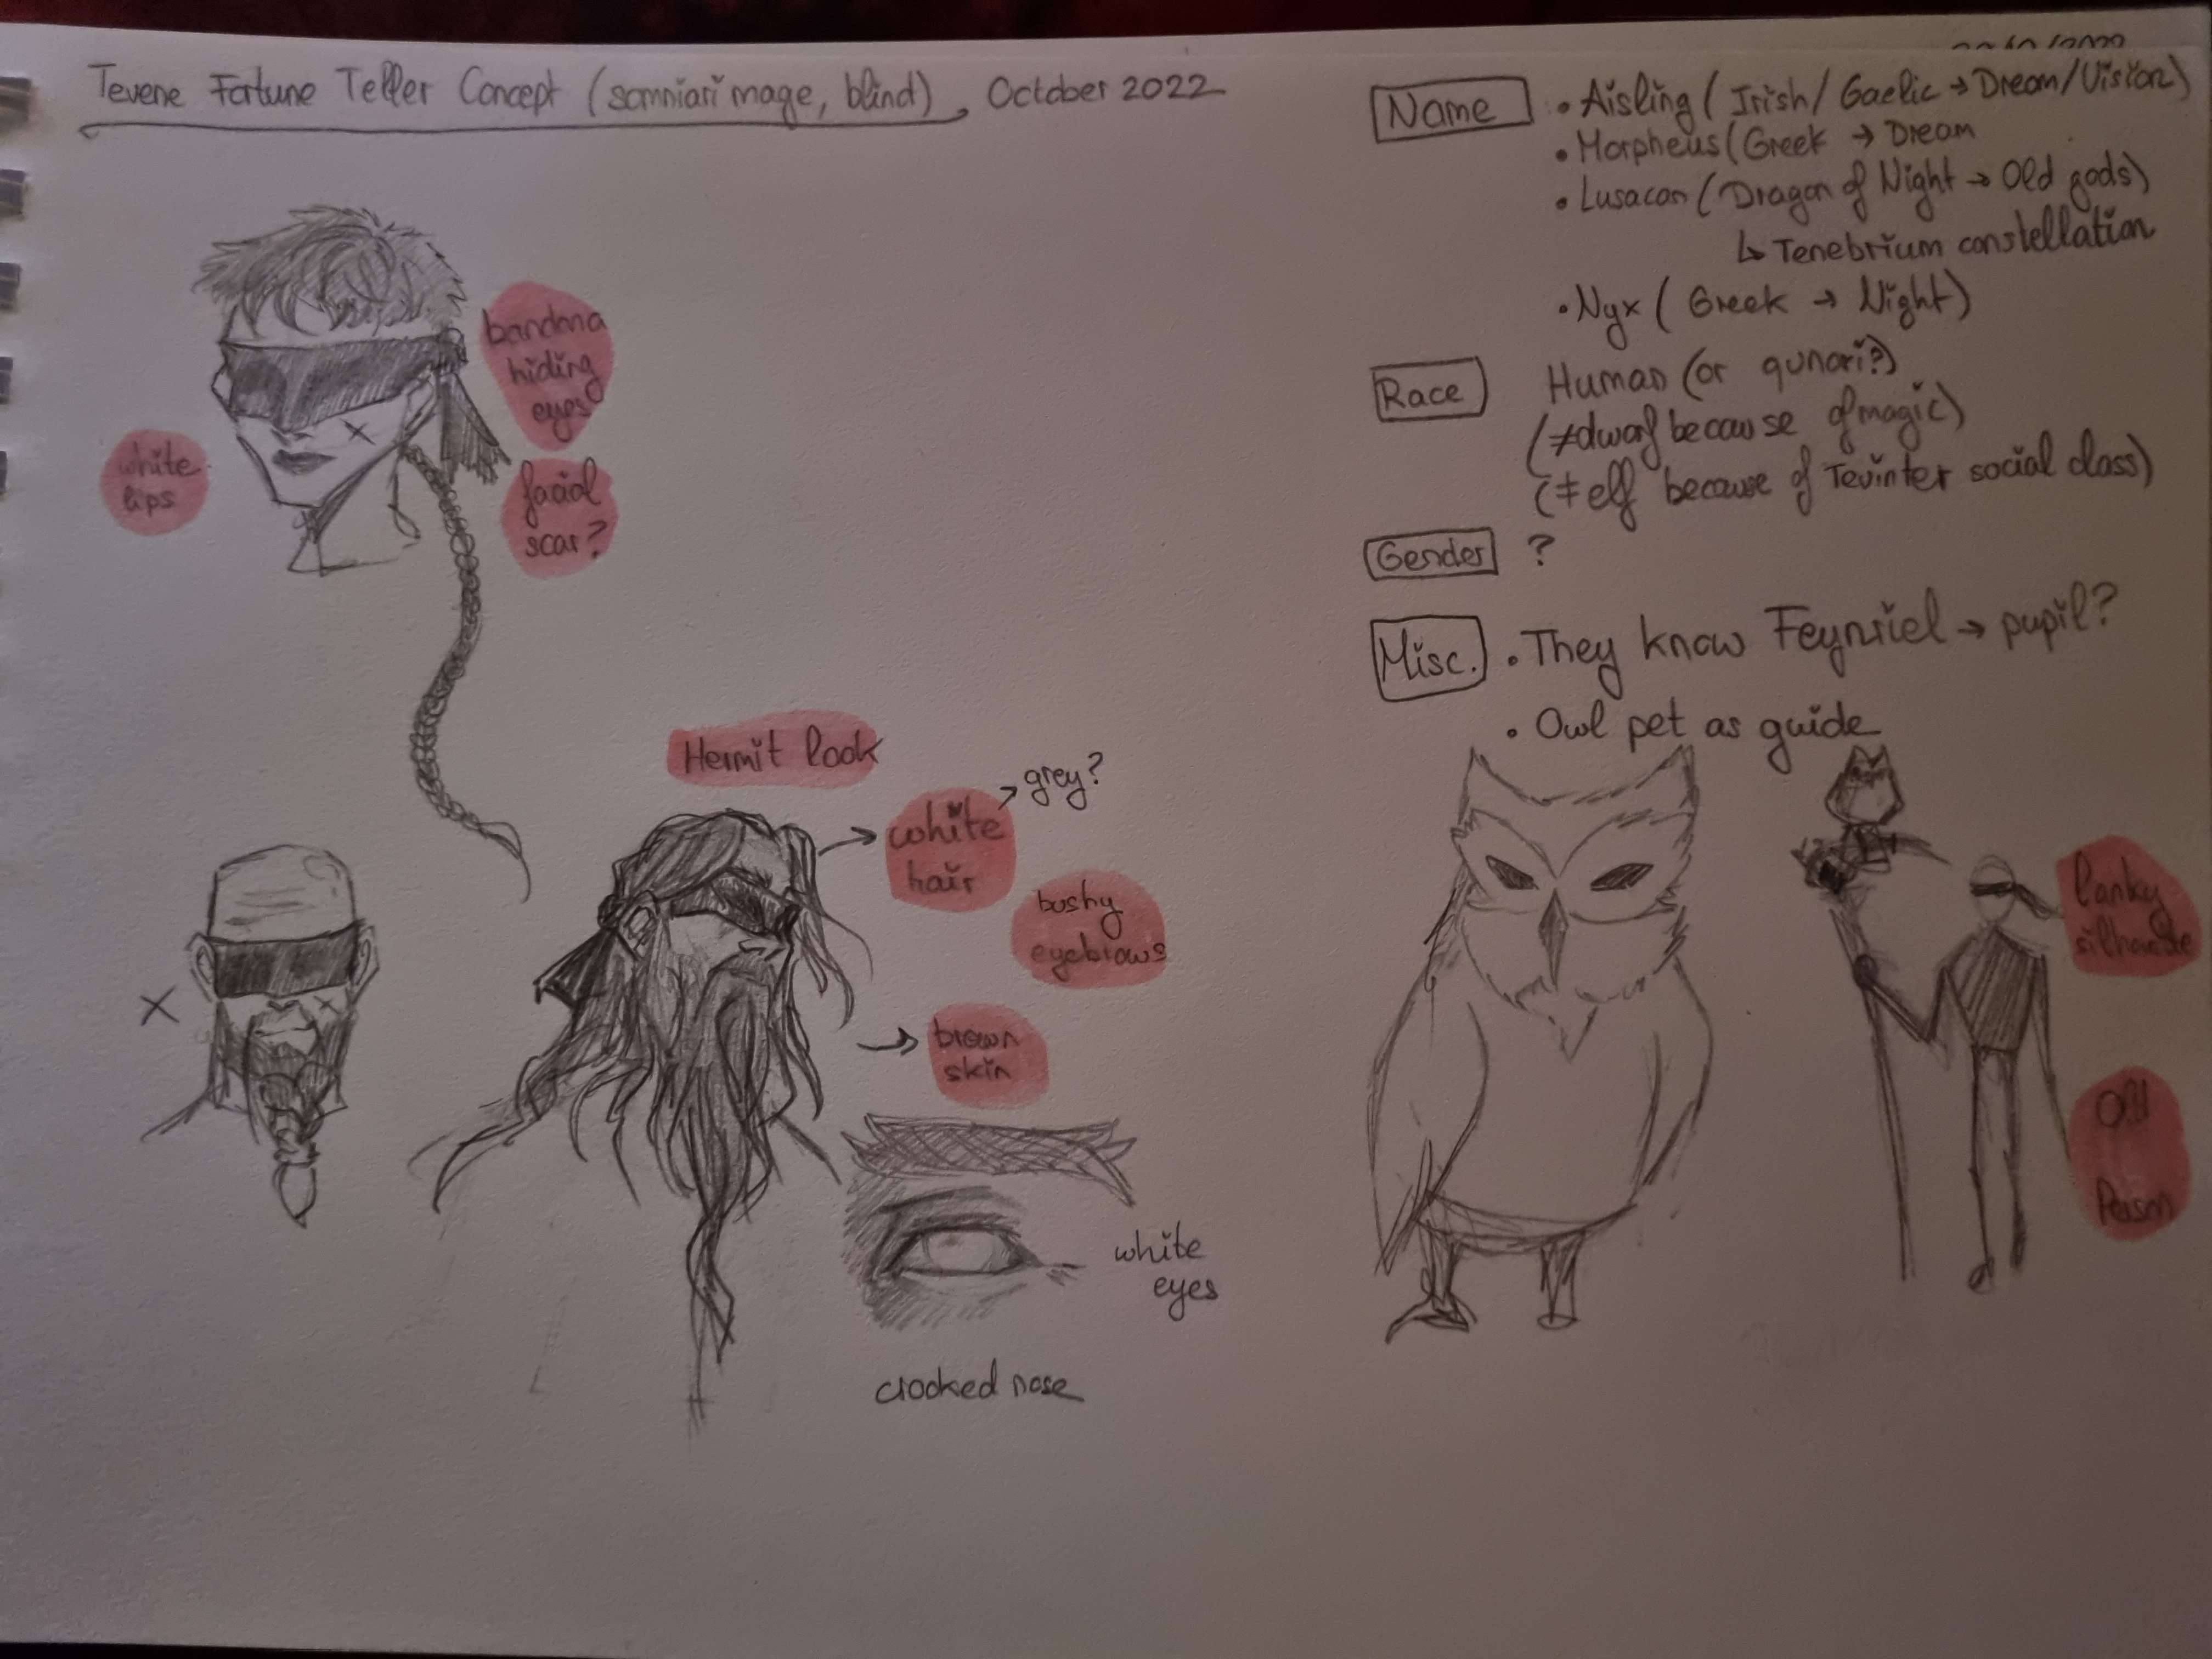 Tevene Fortune Teller Concept (somniari mage, blind), October 2022
bandana
hiding
eyes
white
lips
facial
scar?
Hermit look
white
hair
grey?
bushy
eyebrows
brown
skin
white
eyes
crooked nose
X
Name
• Aisling (Irish/Gaelic → Dream/Vision)
• Morpheus (Greek → Dream
• Lusacan (Dragon of Night → Old gods)
↳ Tenebrium constellation
• Nyx (Greek → Night)
Race
Human (or qunari?)
(≠dwarf because of magic)
(≠elf because of Tevinter social class)
Gender
?
Misc.
• They know Feynriel → pupil?
• Owl pet as guide
lanky
silhouette
Old
Person